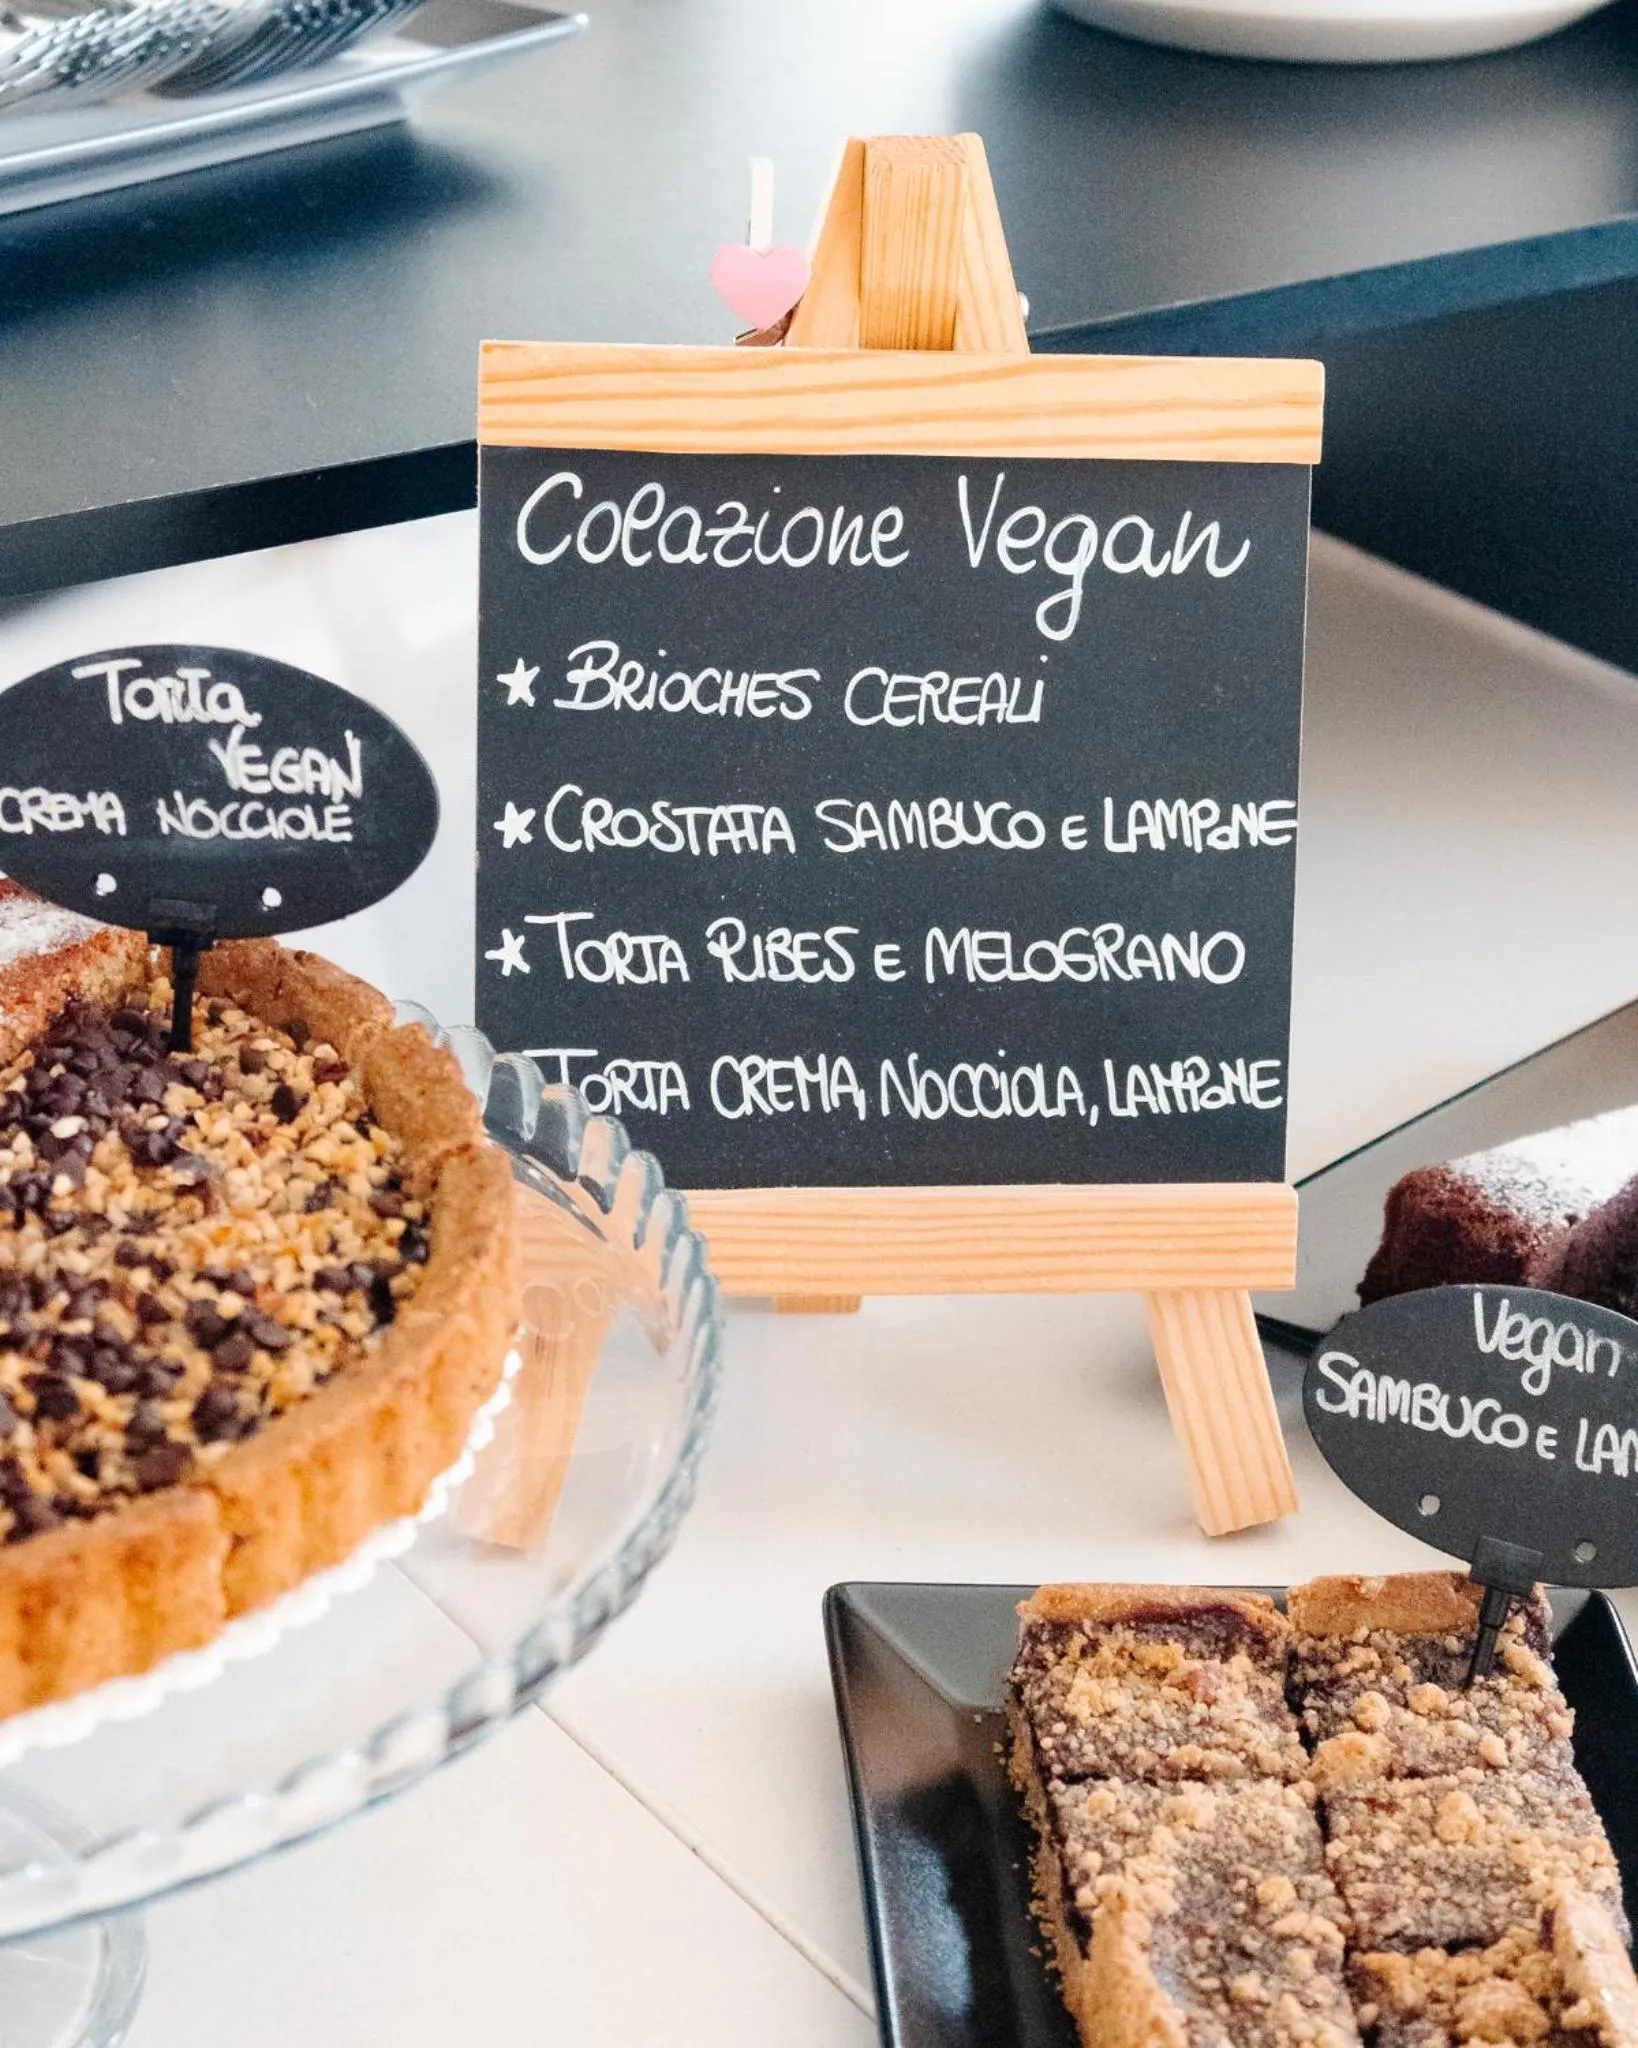 Colazione Vegan
★ BRIOCHES CEREALI
★ CROSTATA SAMBUCO E LAMPONE
★ TORTA RIBES E MELOGRANO
TORTA CREMA, NOCCIOLA, LAMPONE
Torta
VEGAN
CREMA NOCCIOLE
Vegan
SAMBUCO E LAM